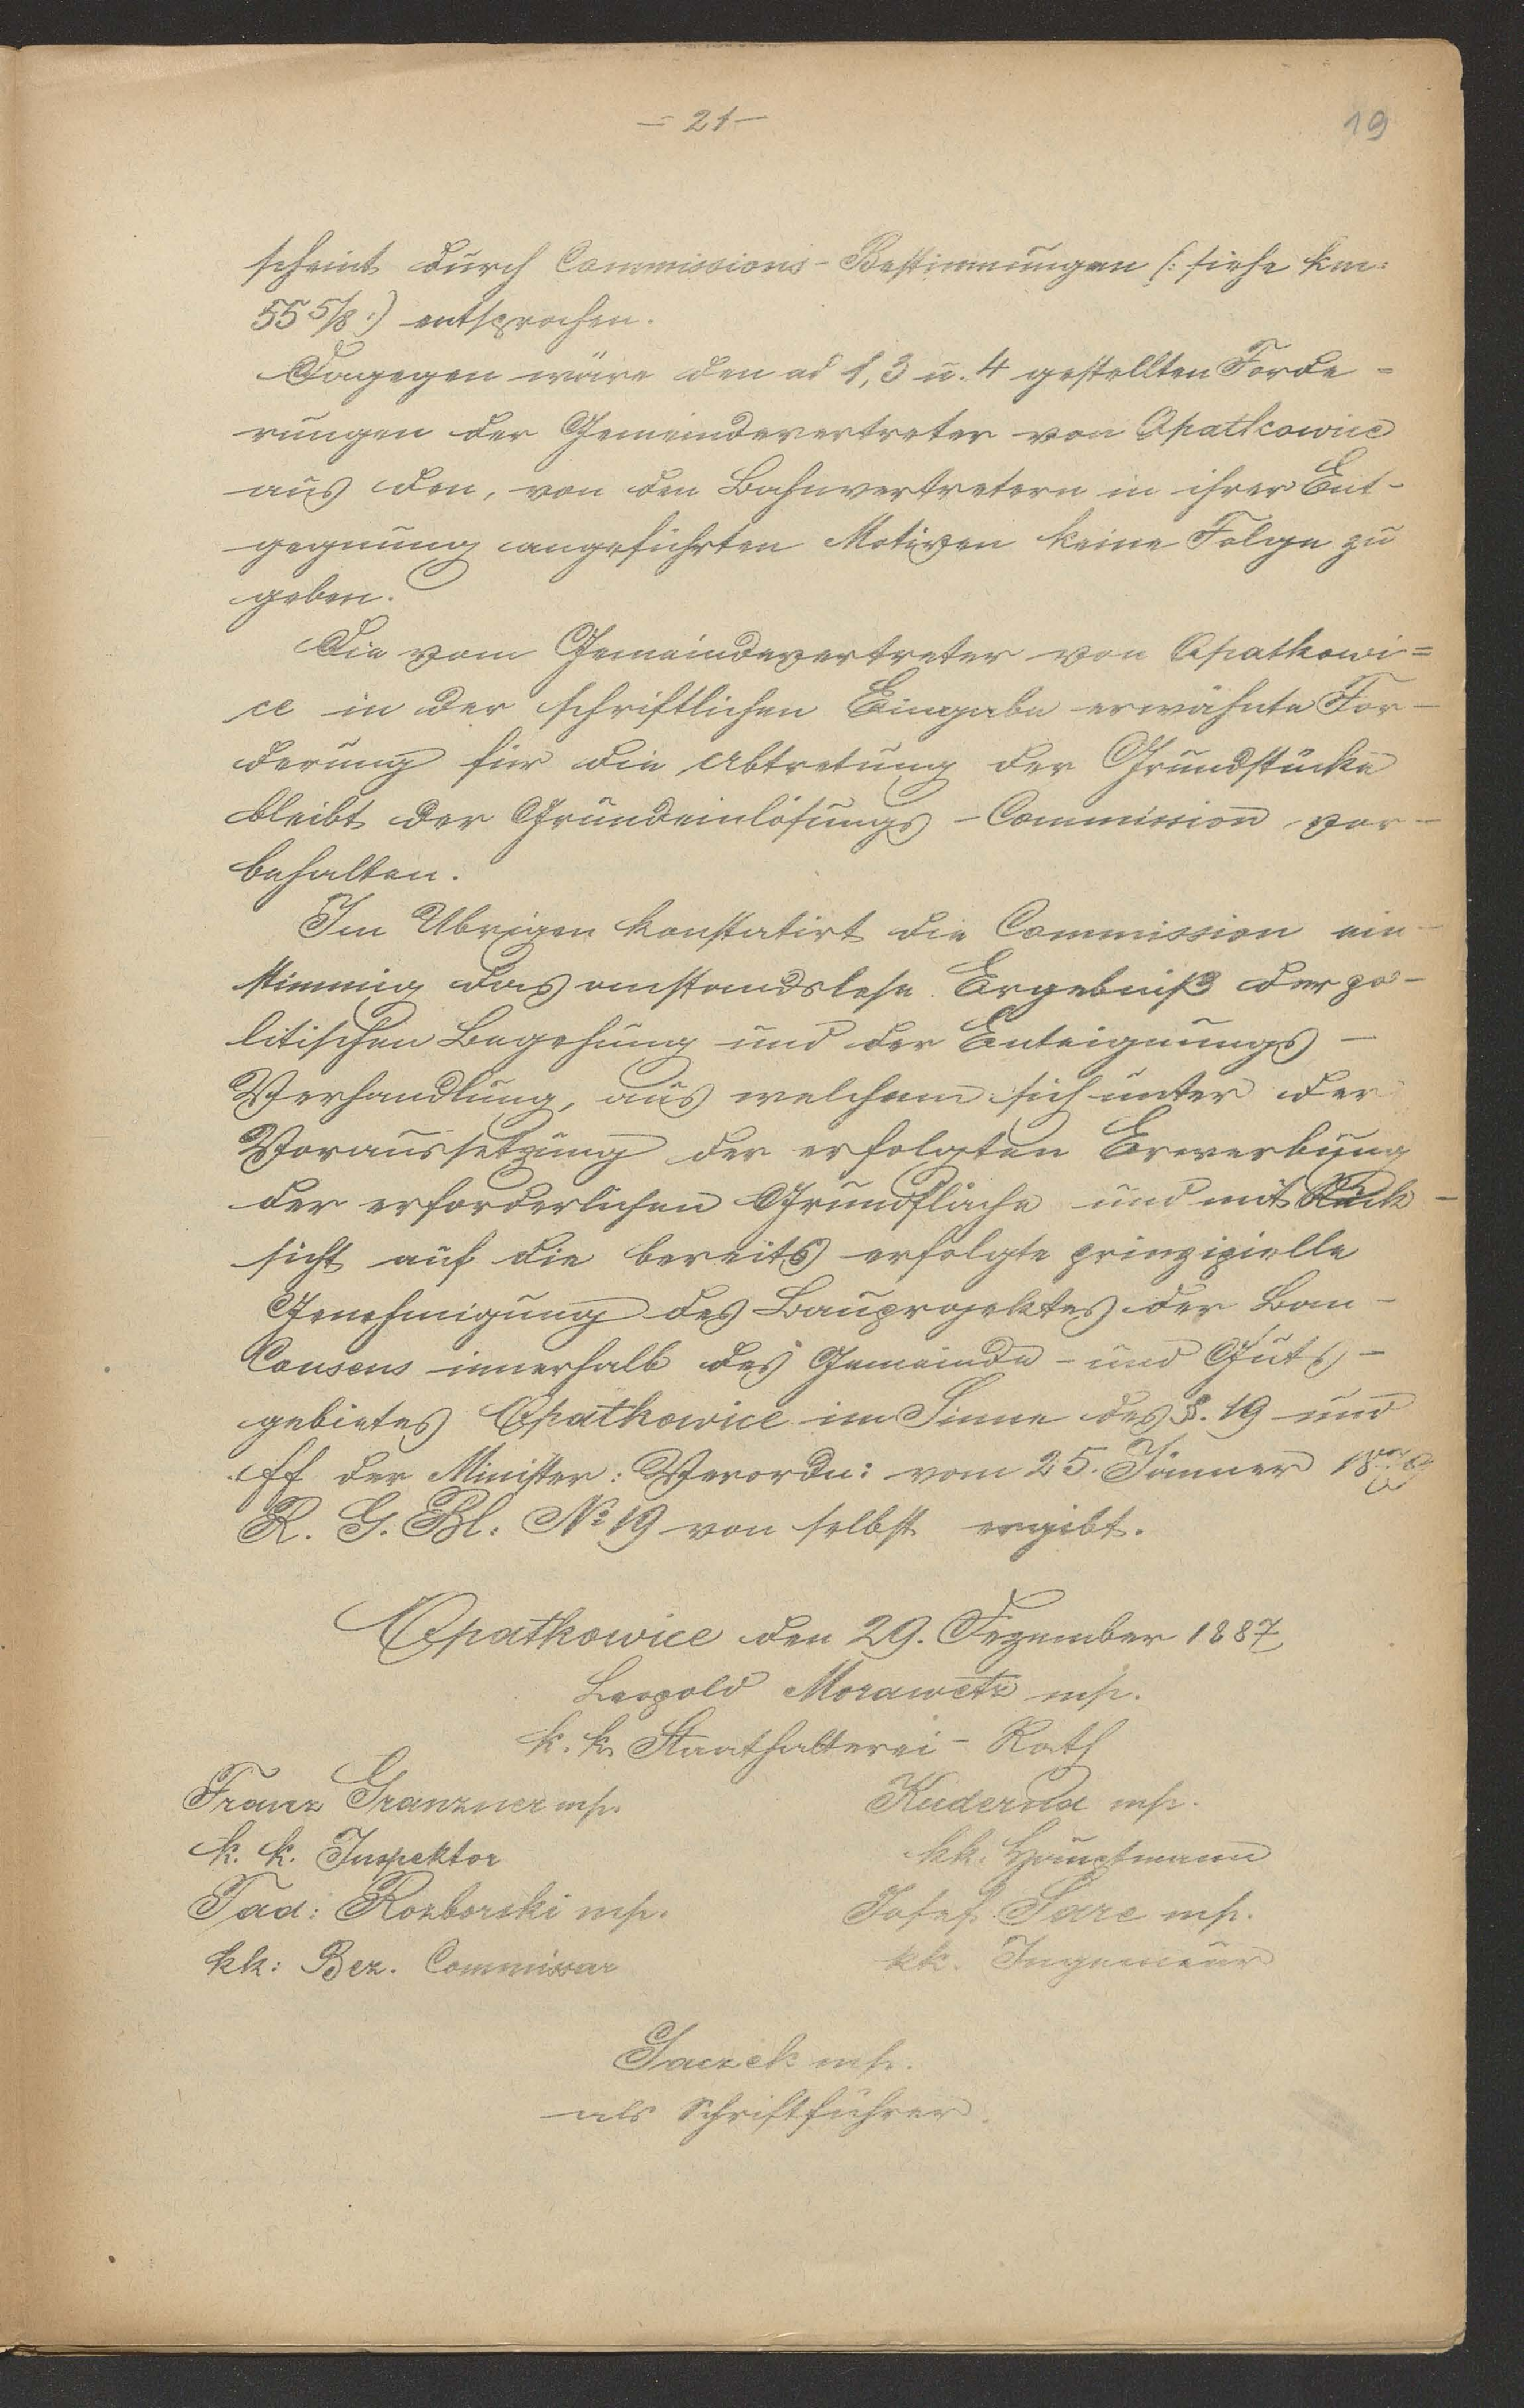 = 21 —
19
scheint durch Commissions-Bestimmungen (: siehe km:
55 5/8 :) entsprochen.
Dagegen wäre den ad 1, 3 u. 4 gestellten Forde=
rungen der Gemeindevertreter von Opatkowice
aus den, von den Bahnvertretern in ihrer Ent-
gegnung angeführten Motiven keine Folge zu
geben.
Die vom Gemeindevertreter von Opatkowi=
ce in der schriftlichen Eingabe erwähnte For-
derung für die Abtretung der Grundstücke
bleibt der Grundeinlösungs-Commission vor-
behalten.
Im Übrigen konstatirt die Commission ein-
stimmig das anstandslose Ergebniß der po-
litischen Begehung und der Enteignungs-
Verhandlung, aus welchem sich unter der
Voraussetzung der erfolgten Erwerbung
der erforderlichen Grundfläche und mit Rück-
sicht auf die bereits erfolgte prinzipielle
Genehmigung des Bauprojektes der Bau-
Consens innerhalb des Gemeinde- und Guts-
gebietes Opatkowice im Sinne des §. 19 und
ff der Minister: Verordn: vom 25. Jänner 1879
R. G. Bl. № 19 von selbst ergibt.
Opatkowice den 29. Dezember 1887
Leopold Morawetz mp.
k. k. Staathalterei-Rath
Franz Granzner mp.
k. k. Inspektor
Tad: Rozborski mp.
kk: Bez. Commissar
Kuderna mp.
kk. Hauptmann
Josef Sare mp.
kk. Ingenieur
Saczek mp.
als Schriftführer.